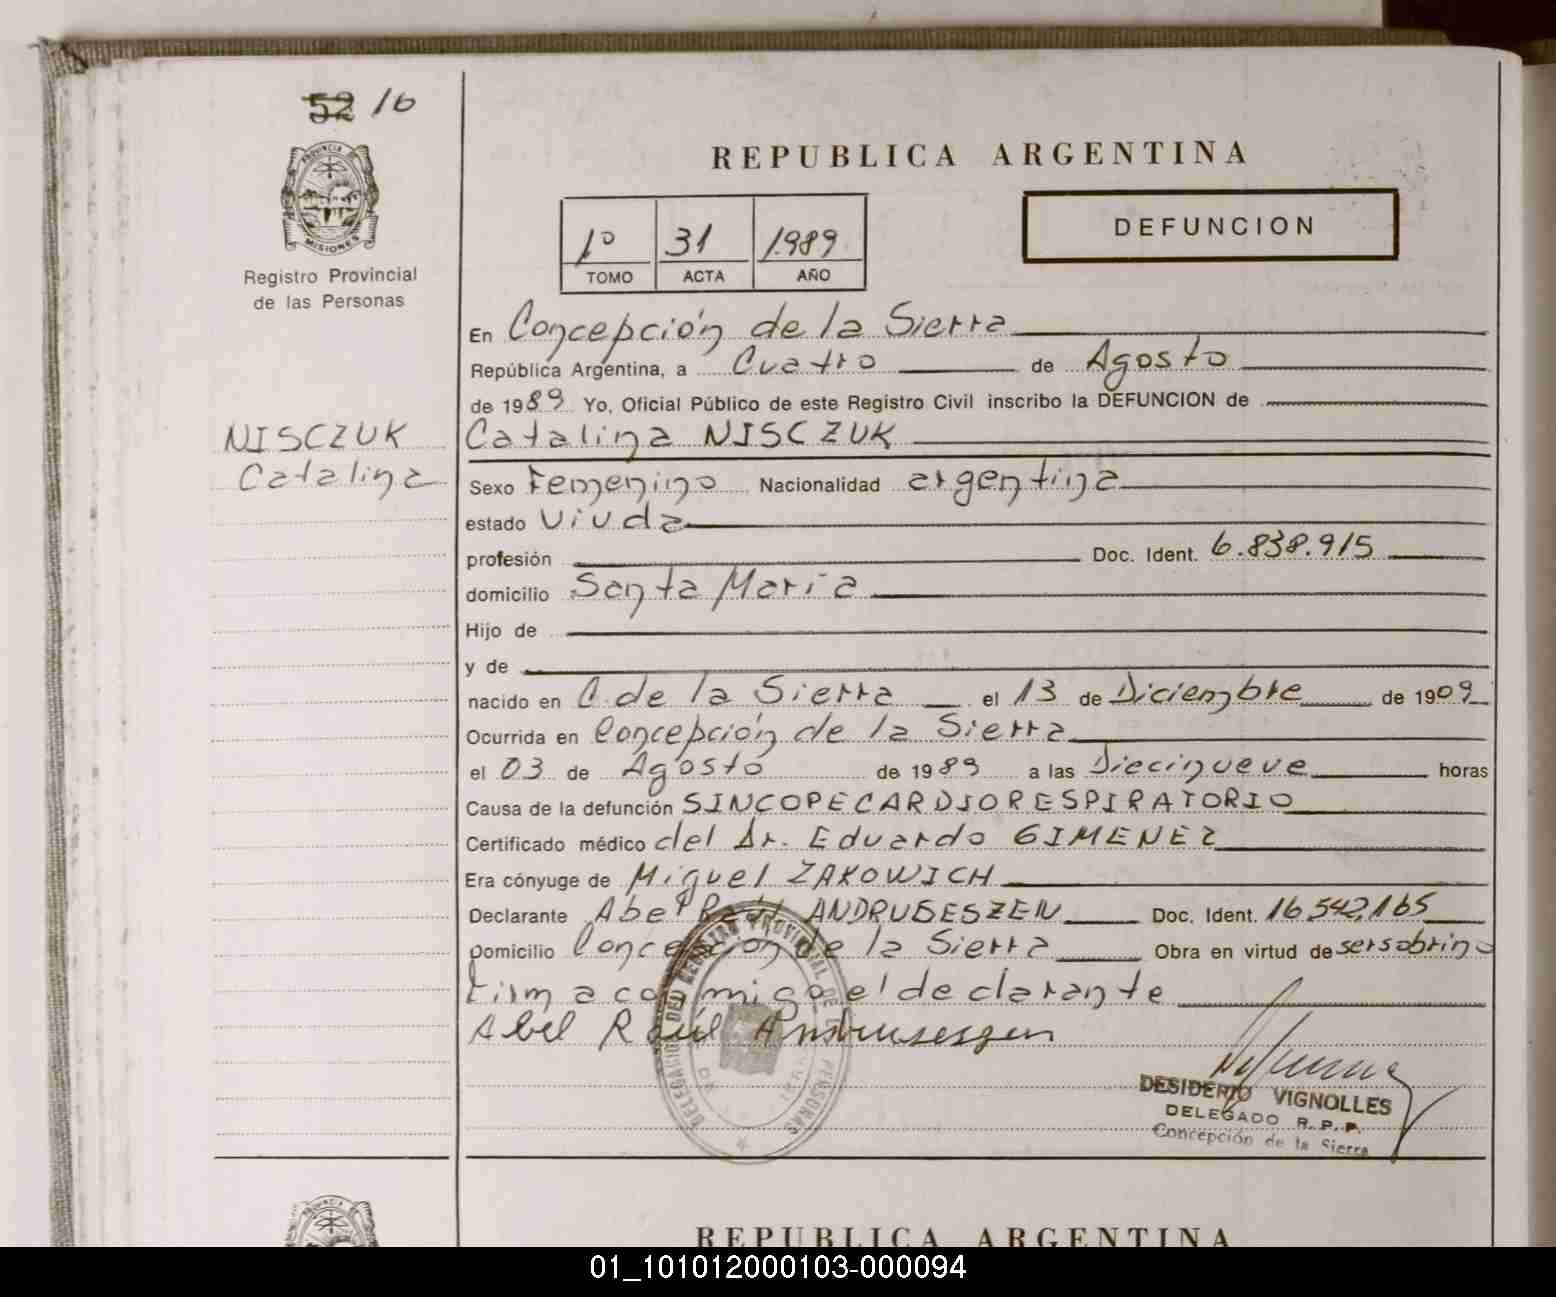 52 16
PROVINCIA DE
MISIONES
Registro Provincial
de las Personas
REPUBLICA ARGENTINA
1º 31 1989
TOMO ACTA AÑO
DEFUNCION
En Concepción de la Sierra
República Argentina, a Cuatro de Agosto
de 1989 Yo, Oficial Público de este Registro Civil inscribo la DEFUNCION de
NISCZUK
Catalina
Catalina NISCZUK
Sexo Femenino Nacionalidad argentina
estado Viuda
profesión Doc. Ident. 6.838.915
domicilio Santa María
Hijo de
y de
nacido en C. de la Sierra el 13 de Diciembre de 1909
Ocurrida en Concepción de la Sierra
el 03 de Agosto de 1989 a las Diecinueve horas
Causa de la defunción SINCOPECARDIORESPIRATORIO
Certificado médico del Dr. Eduardo GIMENEZ
Era cónyuge de Miguel ZAKOWICH
Declarante Abel Raúl ANDRUSESZEN Doc. Ident. 16.542.165
Domicilio Concepción de la Sierra Obra en virtud de ser sobrino
Firma conmigo el declarante
Abel Raúl Andruseszen
DELEGACION DEL REGISTRO PROVINCIAL DE LAS PERSONAS
DESIDERIO VIGNOLLES
DELEGADO R. P. P.
Concepción de la Sierra
REPUBLICA ARGENTINA
01_101012000103-000094